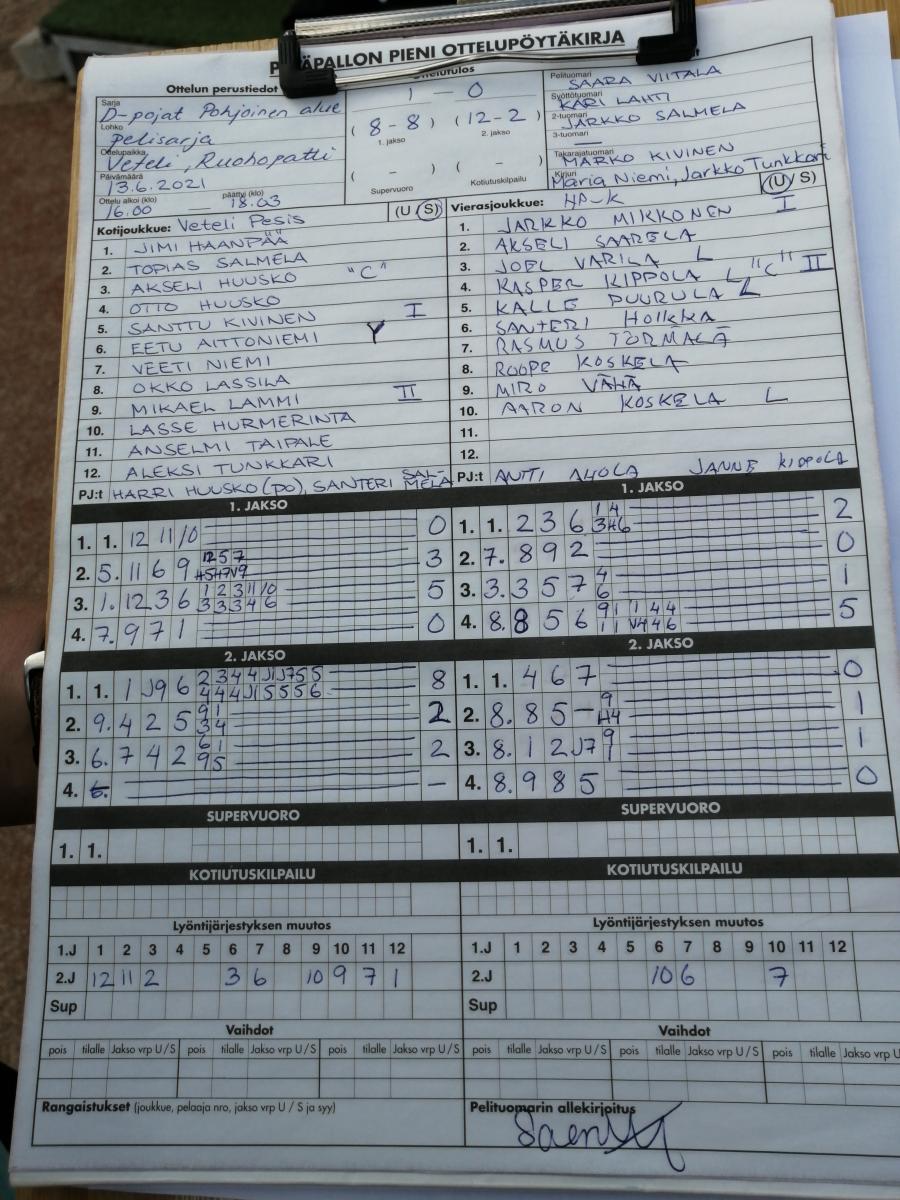 PESÄPALLON PIENI OTTELUPÖYTÄKIRJA
Ottelun perustiedot
Sarja
D-pojat Pohjoinen alue
Lohko
pelisarja
Ottelupaikka
Veteli, Ruohopatti
Päivämäärä
13.6.2021
Ottelu alkoi (klo) päättyi (klo)
16.00 18.03
Ottelutulos
1 - 0
(8-8) (12-2)
1. jakso 2. jakso
( - ) ( - )
Supervuoro Kotiutuskilpailu
Pelituomari
SAARA VIITALA
Syöttötuomari
KARI LAHTI
2-tuomari
JARKKO SALMELA
3-tuomari
—
Takarajatuomari
MARKO KIVINEN
Kirjuri
Maria Niemi, Jarkko Tunkkari
Kotijoukkue: Veteli Pesis (U S)
1. JIMI HAANPÄÄ
2. TOPIAS SALMELA
3. AKSELI HUUSKO "C"
4. OTTO HUUSKO
5. SANTTU KIVINEN I
6. EETU AITTONIEMI Y
7. VEETI NIEMI
8. OKKO LASSILA
9. MIKAEL LAMMI II
10. LASSE HURMERINTA
11. ANSELMI TAIPALE
12. ALEKSI TUNKKARI
PJ:t HARRI HUUSKO (PO), SANTERI SALMELA
Vierasjoukkue: HP-K (U S)
1. JARKKO MIKKONEN I
2. AKSELI SAARELA
3. JOEL VARILA L
4. KASPER KIPPOLA L "C" II
5. KALLE PUURULA L
6. SANTERI HOIKKA
7. RASMUS TÖRMÄLÄ
8. ROOPE KOSKELA
9. MIRO VÄHÄ
10. AARON KOSKELA L
11.
12.
PJ:t ANTTI AHOLA JANNE KIPPOLA
1. JAKSO
1. 1. 12 11/0 0
2. 5. 11 6 9 3
3. 1. 12 3 6 1 2 3 11/0 5
3 3 3 4 6
4. 7. 9 7 1 0
1. JAKSO
1. 1. 2 3 6 1 4 2
2. 7. 8 9 2 0
3. 3. 3 5 7 4 1
6
4. 8. 8 5 6 9 1 1 4 4 5
2. JAKSO
1. 1. 1 J9 6 2 3 4 4 J1 J7 5 5 8
4 4 4 J1 5 5 5 6
2. 9. 4 2 5 9 1 2
3 4
3. 6. 7 4 2 6 1 2
9 5
4. 6. —
2. JAKSO
1. 1. 4 6 7 0
2. 8. 8 5 - 9 1
3. 8. 1 2 J7 9 1
1
4. 8. 9 8 5 0
SUPERVUORO
1. 1.
SUPERVUORO
1. 1.
KOTIUTUSKILPAILU
KOTIUTUSKILPAILU
Lyöntijärjestyksen muutos
1.J 1 2 3 4 5 6 7 8 9 10 11 12
2.J 12 11 2 3 6 10 9 7 1
Sup
Lyöntijärjestyksen muutos
1.J 1 2 3 4 5 6 7 8 9 10 11 12
2.J 10 6 7
Sup
Vaihdot
pois tilalle Jakso vrp U/S pois tilalle Jakso vrp U/S pois tilalle Jakso vrp U/S
Vaihdot
pois tilalle Jakso vrp U/S pois tilalle Jakso vrp U/S pois tilalle Jakso vrp U
Rangaistukset (joukkue, pelaaja nro, jakso vrp U / S ja syy)
Pelituomarin allekirjoitus